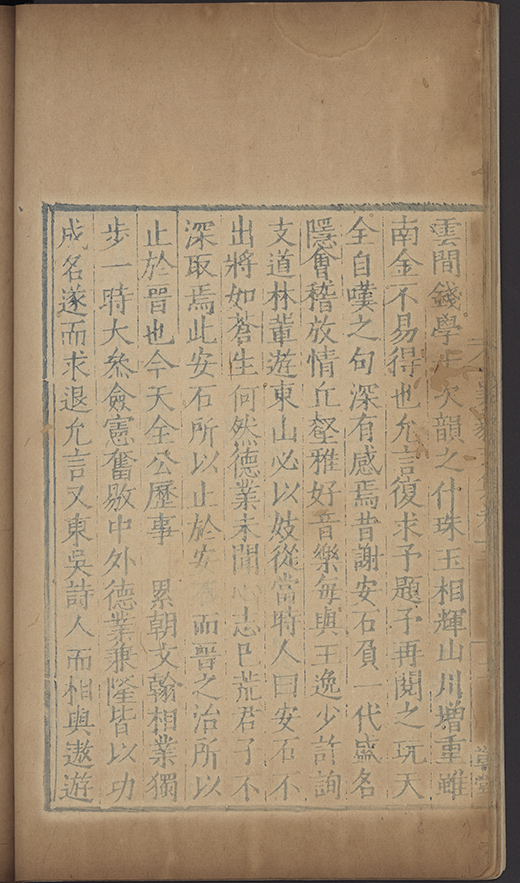 雲間錢學士次韻之什珠玉相輝山川增重雖
南金不易得也允言復求予題予再閱之玩天
全自嘆之句深有感焉昔謝安石負一代盛名
隱會稽放情丘壑雅好音樂每與王逸少許詢
支道林輩遊東山必以妓從當時人曰安石不
出將如蒼生何然德業未聞心志已荒君子不
深取焉此安石所以止於安 而晉之治所以
止於晉也今天全公歷事 累朝文翰相業獨
步一時大叅僉憲奮敭中外德業兼隆皆以功
成名遂而求退允言又東吳詩人而相與遨遊